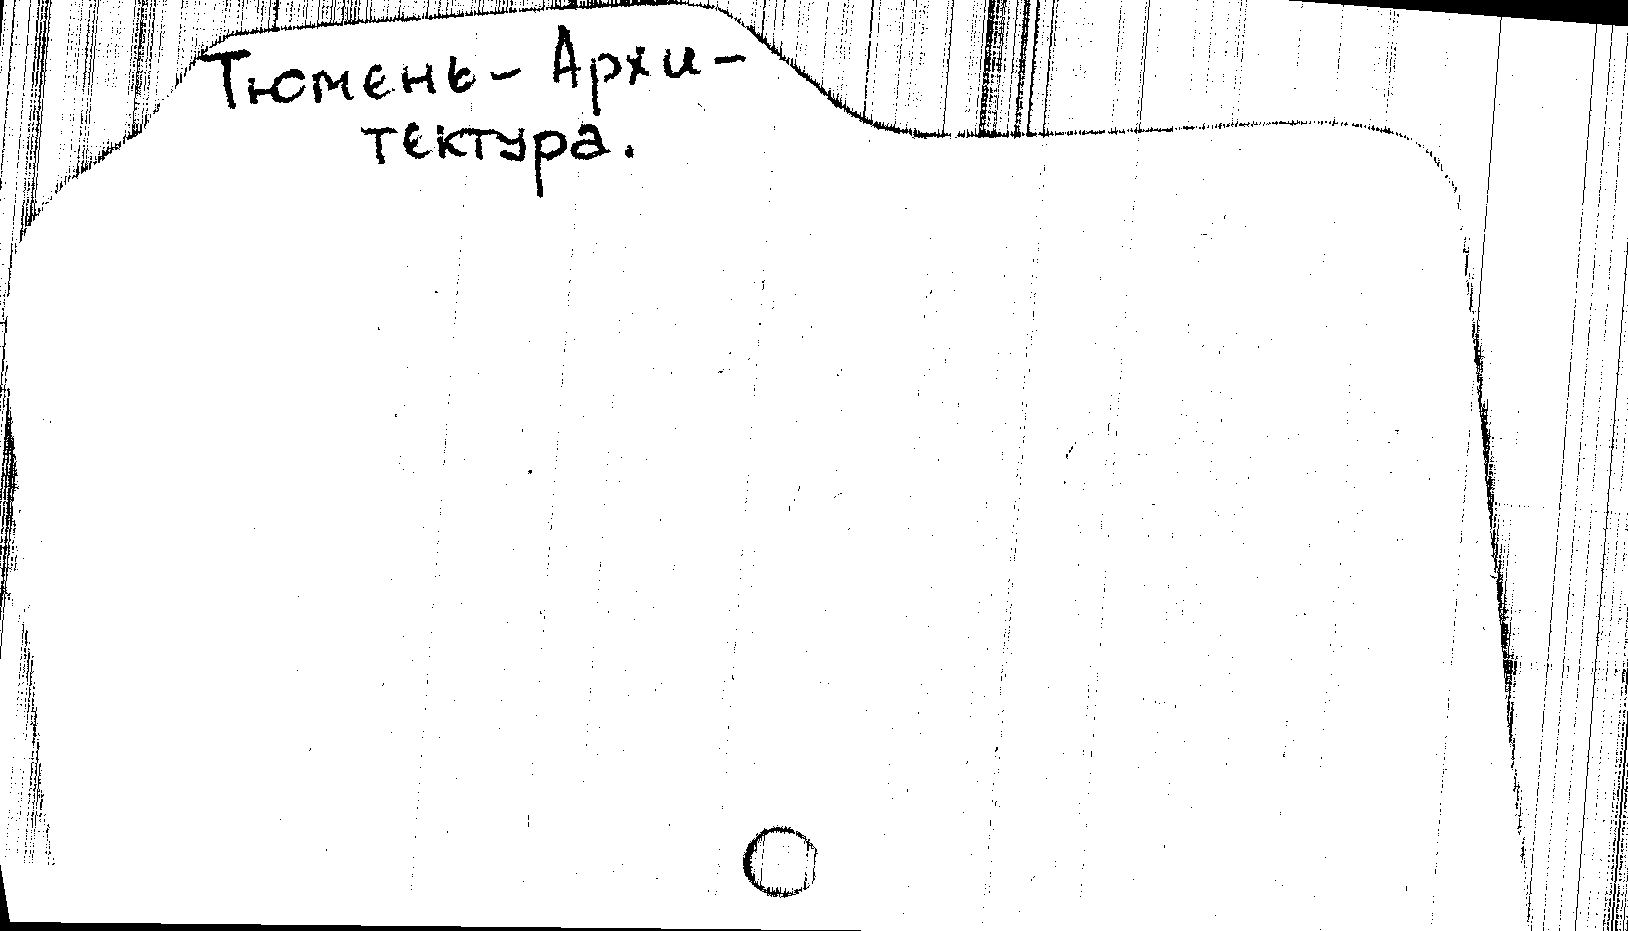 Тюмень - Архи-
тектура.